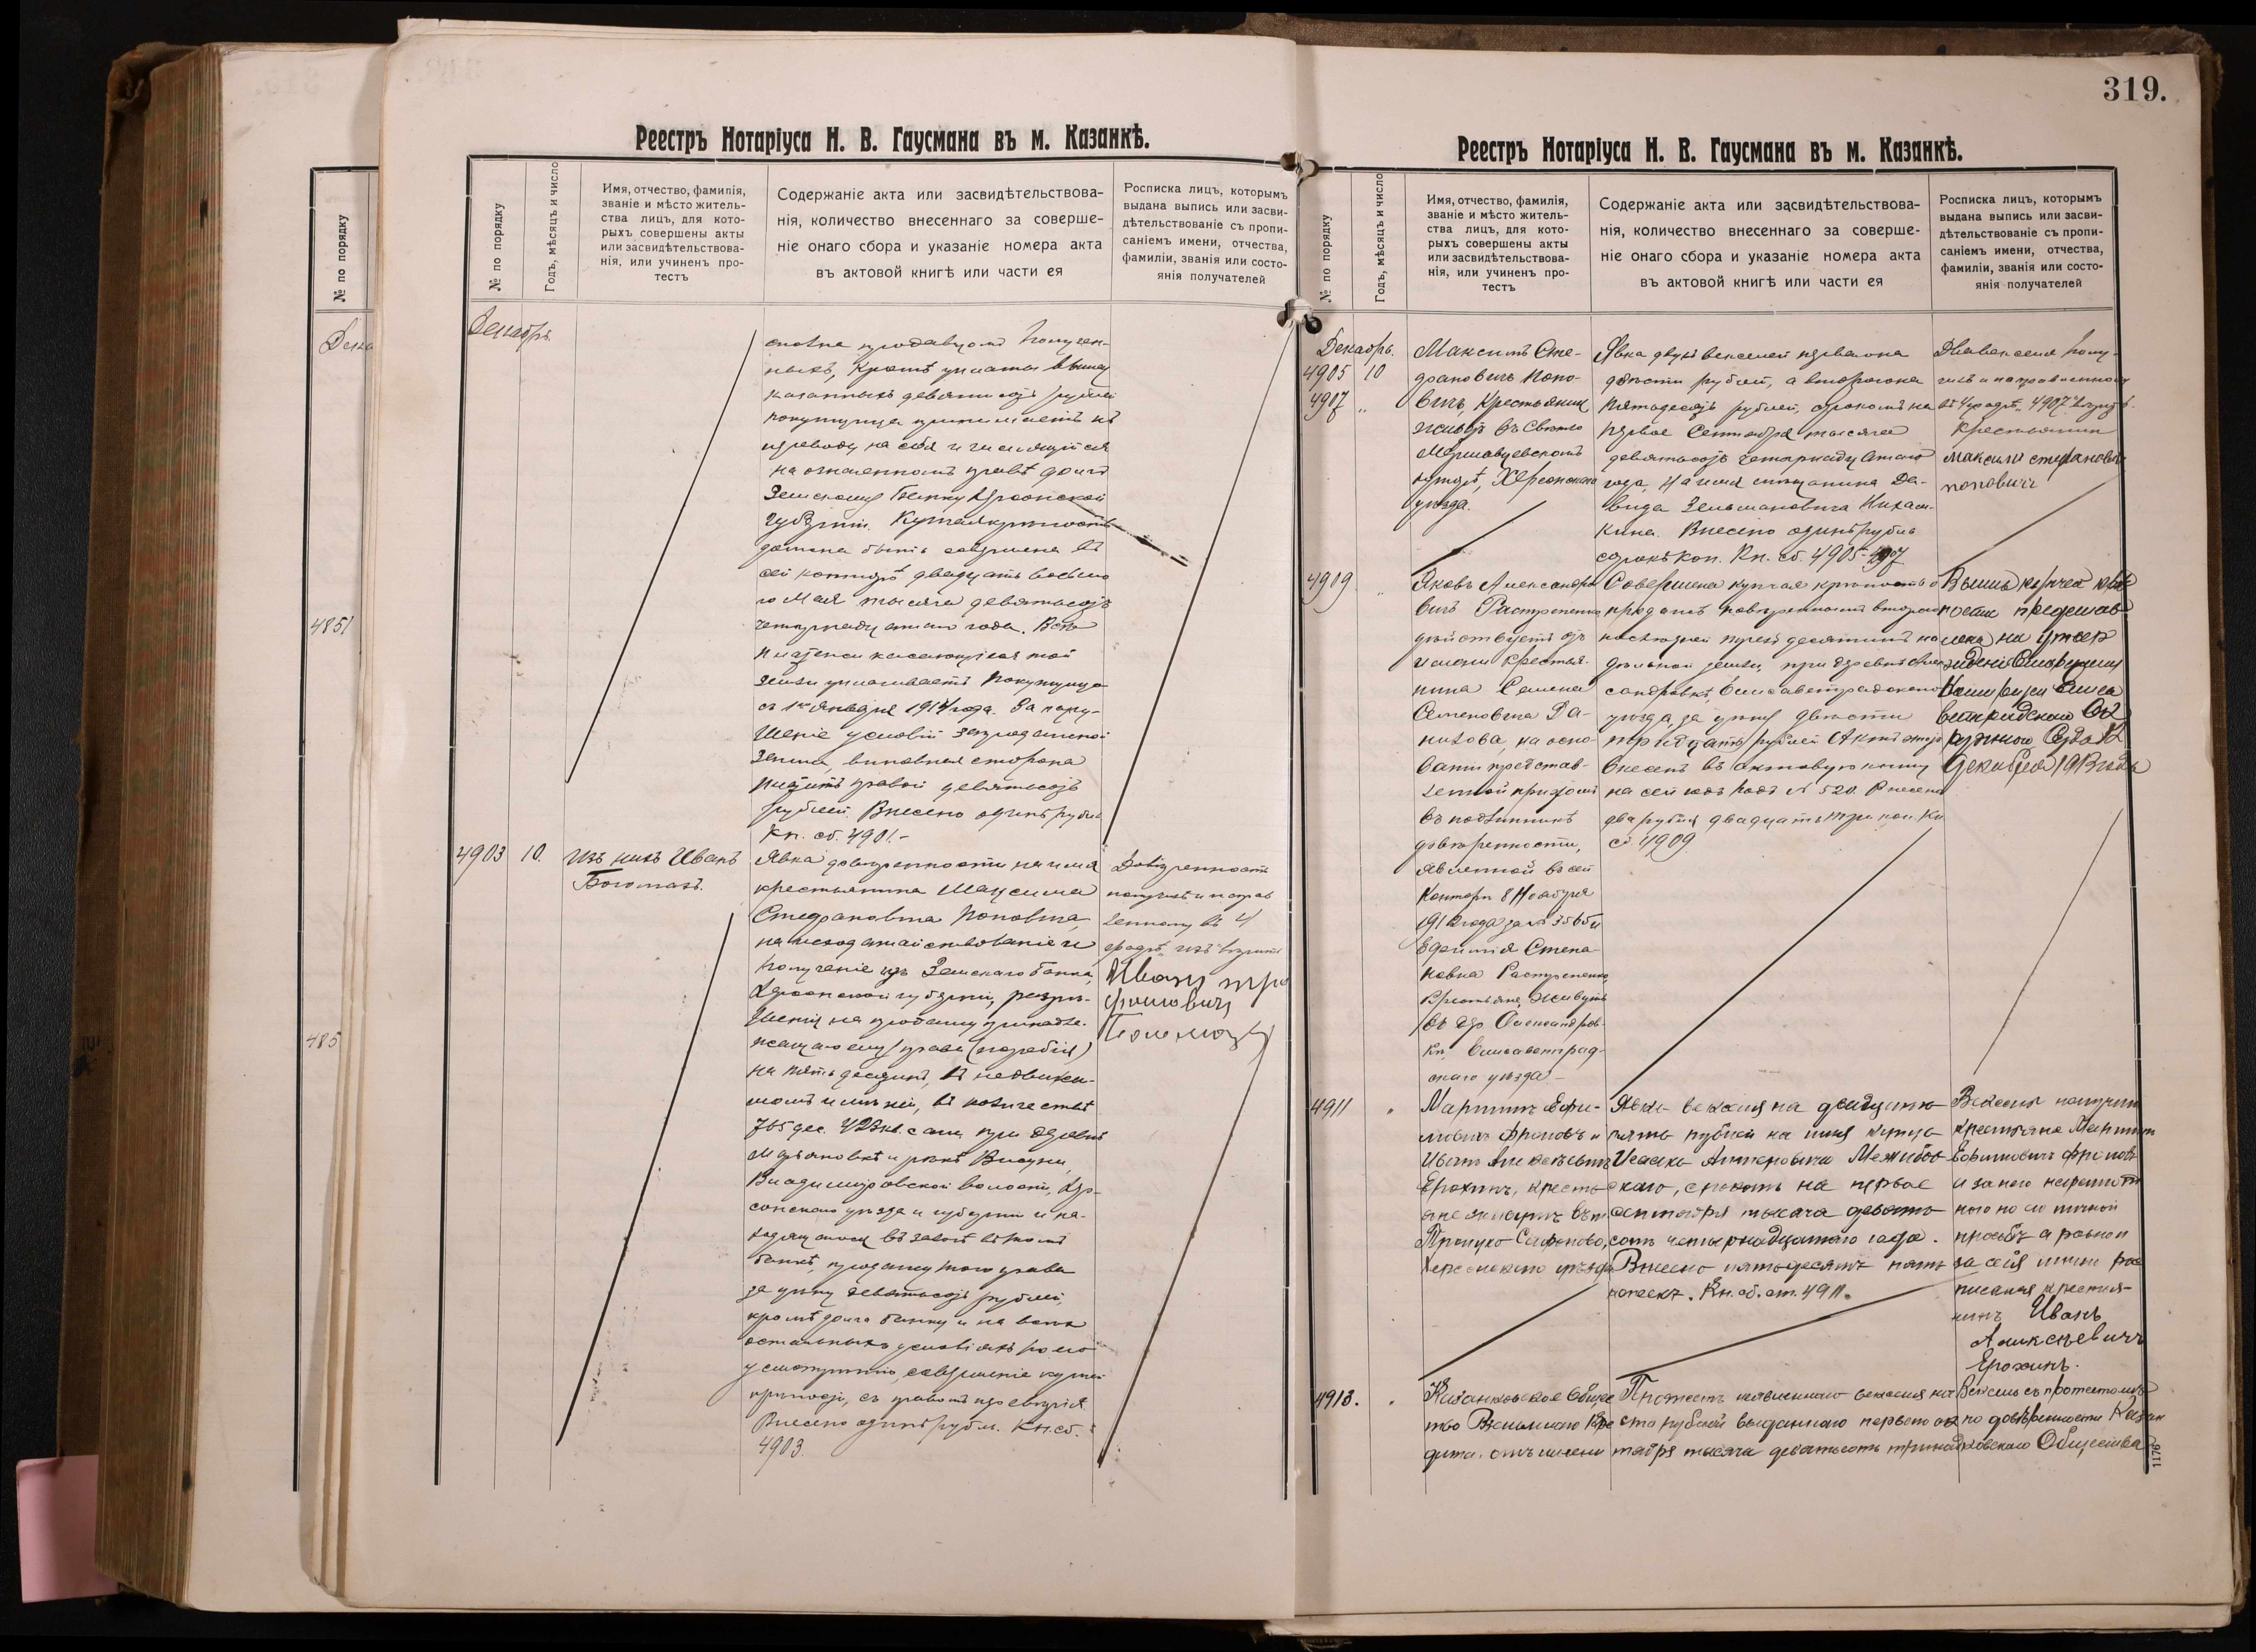 № по порядку
Дека
4851
485
Реестръ Нотаріуса Н. В. Гаусмана въ м. Казанкѣ.
№ по порядку
Годъ, мѣсяцъ и число
Имя, отчество, фамилія,
званіе и мѣсто житель-
ства лицъ, для кото-
рыхъ совершены акты
или засвидѣтельствова-
нія, или учиненъ про-
тестъ
Содержаніе акта или засвидѣтельствова-
нія, количество внесеннаго за соверше-
ніе онаго сбора и указаніе номера акта
въ актовой книгѣ или части ея
Росписка лицъ, которымъ
выдана выпись или засви-
дѣтельствованіе съ пропи-
саніемъ имени, отчества,
фамиліи, званія или состо-
янія получателей
Декабрь.
сполна продавцомъ получен-
ныхъ, кромѣ уплаты выше
казанныхъ девятисотъ рублей
покупщица принимаетъ къ
переводу на себя и числящійся
на означенномъ правѣ долгъ
Земскому Банку Херсонской
губерніи. Купчая крѣпость
должна быть совершена въ
сей конторѣ двадцать восьмо
го Мая тысяча девятьсотъ
четырнадцатаго года. Всѣ
платежи касающіеся той
земли уплачиваетъ покупщица
съ 1го Января 1914 года. За нару-
шеніе условій запроданной
земли, виновная сторона
платитъ правой девятьсотъ
рублей. Внесено одинъ рубль
Кн. сб. 4901.-
4903 10.
Изъ нихъ Иванъ
Богомазъ.
Явка довѣренности на имя
крестьянина Максима
Стефановича Поповича,
на исходатайствованіе и
полученіе изъ Земскаго банка,
Херсонской губерніи, разрѣ-
шенія на продажу принадле-
жащаго ему права (жеребія)
на пять десятинъ, въ недвижи-
момъ имѣніи, въ количествѣ
765 дес. 423 кв. саж. при деревнѣ
Марьяновкѣ и рѣкѣ Висуни,
Владимировской волости, Хер-
сонскаго уѣзда и губерніи и на-
ходящагося въ залогѣ въ томъ
банкѣ, продажу того права
за цѣну девятьсотъ рублей,
кромѣ долга банку и на всѣхъ
остальныхъ условіяхъ по его
усмотрѣнію, совершеніе купчей
крѣпости, съ правомъ передовѣрія.
Внесено одинъ рубль. Кн. сб.
4903.
Довѣренность
получилъ и исправ
ленному въ 4
графѣ „изъ" вѣрить
Иванъ тро
фимовичъ
Богомазъ
319.
Реестръ Нотаріуса Н. В. Гаусмана въ м. Казанкѣ.
№ по порядку
Годъ, мѣсяцъ и число
Имя, отчество, фамилія,
званіе и мѣсто житель-
ства лицъ, для кото-
рыхъ совершены акты
или засвидѣтельствова-
нія, или учиненъ про-
тестъ
Содержаніе акта или засвидѣтельствова-
нія, количество внесеннаго за соверше-
ніе онаго сбора и указаніе номера акта
въ актовой книгѣ или части ея
Росписка лицъ, которымъ
выдана выпись или засви-
дѣтельствованіе съ пропи-
саніемъ имени, отчества,
фамиліи, званія или состо-
янія получателей
Декабрь.
4905 10
4907 „
Максимъ Сте-
фановичъ Попо-
вичъ, крестьянинъ
живетъ въ
хуторѣ, Херсонскаго
уѣзда.
Явка двухъ векселей перваго на
двѣсти рублей, а второго на
пятьдесятъ рублей, срокомъ на
первое Сентября тысяча
девятьсотъ четырнадцатаго
года, на имя мѣщанина Да-
вида Зельмановича
Внесено одинъ рубль
сорокъ коп. Кн. сб. 4905-4907
Два векселя полу-
чилъ и исправленному
въ 1 графѣ „4907" вѣрить.
Крестьянинъ
Максимъ стефановичъ
поповичъ
4909 „
Яковъ Александро
вичъ Расторгненко
дѣйствуетъ отъ
имени крестья-
нина Семена
Семеновича Да-
нилова, на осно-
ваніи представ-
ленной при семъ
въ подлинникѣ
довѣренности,
явленной въ сей
Конторѣ 8 Ноября
1912 года за № 3565 и
Евдокія Степа-
новна
крестьяне, живутъ
въ дер. Александров-
кѣ, Елисаветград-
скаго уѣзда
Совершена купчая крѣпость о
продажѣ повѣреннымъ второй
послѣдней трехъ десятинъ на-
дѣльной земли, при деревнѣ Алек-
сандровкѣ, Елисаветградскаго
уѣзда, за цѣну двѣсти
тридцать рублей. Актъ этотъ
внесенъ въ актовую книгу
на сей годъ подъ № 520. Внесено
два рубля двадцать три коп. Кн.
сб. 4909
Выпись купчей крѣ
пости представ
лена на утвер
жденіе Старшему
Нотаріусу Елиса
ветградскаго Ок
ружнаго Суда 12
Декабря 1913 года
4911 „
Мартинъ Ефи-
мовичъ Фроловъ и
Иванъ Алексѣевичъ
Ерохинъ, кресть-
яне живутъ въ п.
Сафоново,
Херсонскаго уѣзда
Явка векселя на двадцать
пять рублей на имя купца
Исаака Межибов-
скаго, срокомъ на первое
сентября тысяча девять-
сотъ четырнадцатаго года.
Внесено пятьдесятъ пять
копеекъ. Кн. сб. ст. 4911.
Вексель получили
крестьяне Мартинъ
Ефимовичъ Фроловъ
и за него неграмот
наго по его личной
просьбѣ а равно и
за себя лично рос
писался крестья-
нинъ Иванъ
Алиексѣевичъ
Ерохинъ.
4913. „
Казанковское Общес
тво Взаимнаго Кре
дита, отъ имени
Протестъ неявленнаго векселя на
сто рублей выданнаго перваго ок
тября тысяча девятьсотъ тринад
Вексель съ протестомъ
по довѣренности Казан
ковскаго Общества
1176